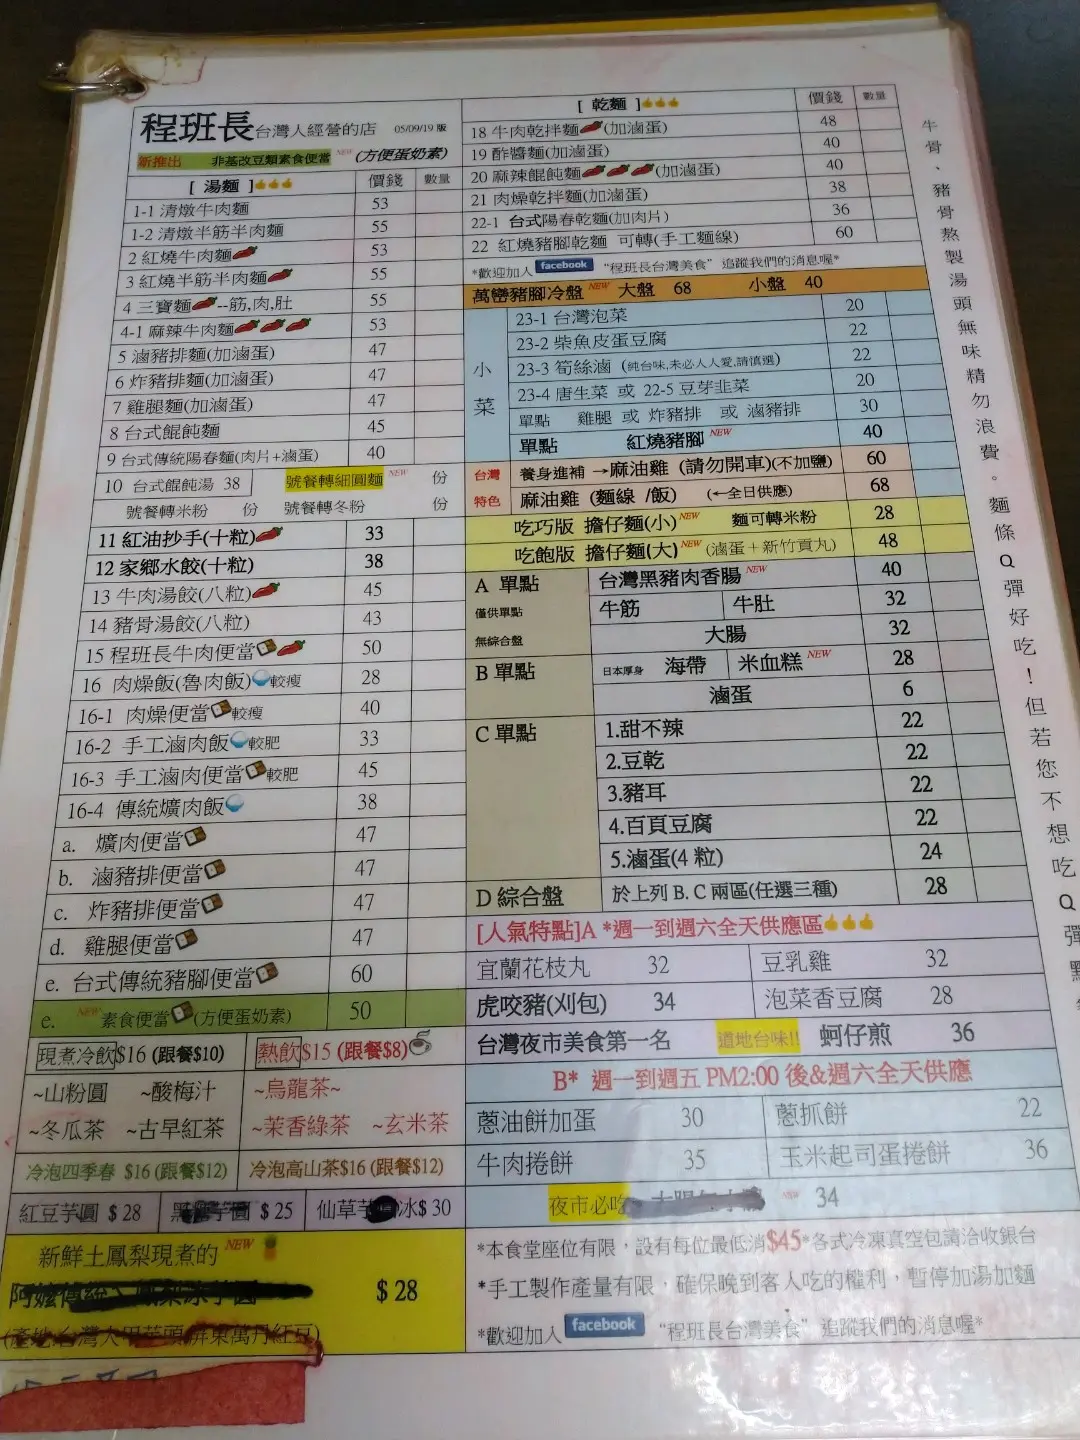 程班長台灣人經營的店 05/09/19 版
新推出 非基改豆類素食便當 NEW (方便蛋奶素)
[ 湯麵 ] 價錢 數量
1-1 清燉牛肉麵 53
1-2 清燉半筋半肉麵 55
2 紅燒牛肉麵 53
3 紅燒半筋半肉麵 55
4 三寶麵--筋,肉,肚 55
4-1 麻辣牛肉麵 53
5 滷豬排麵(加滷蛋) 47
6 炸豬排麵(加滷蛋) 47
7 雞腿麵(加滷蛋) 47
8 台式餛飩麵 45
9 台式傳統陽春麵(肉片+滷蛋) 40
10 台式餛飩湯 38 號餐轉細圓麵 NEW 份
號餐轉米粉 份 號餐轉冬粉 份
11 紅油抄手(十粒) 33
12 家鄉水餃(十粒) 38
13 牛肉湯餃(八粒) 45
14 豬骨湯餃(八粒) 43
15 程班長牛肉便當 50
16 肉燥飯(魯肉飯) 較瘦 28
16-1 肉燥便當 較瘦 40
16-2 手工滷肉飯 較肥 33
16-3 手工滷肉便當 較肥 45
16-4 傳統爌肉飯 38
a. 爌肉便當 47
b. 滷豬排便當 47
c. 炸豬排便當 47
d. 雞腿便當 47
e. 台式傳統豬腳便當 60
e. NEW 素食便當 (方便蛋奶素) 50
現煮冷飲$16 (跟餐$10) 熱飲$15 (跟餐$8)
~山粉圓 ~酸梅汁 ~烏龍茶~
~冬瓜茶 ~古早紅茶 ~茉香綠茶 ~玄米茶
冷泡四季春 $16 (跟餐$12) 冷泡高山茶$16 (跟餐$12)
紅豆芋圓 $ 28 芋圓 $ 25 仙草芋冰$ 30
新鮮土鳳梨現煮的 NEW
$ 28
(產地:台灣大甲芋頭/屏東萬丹紅豆)
[ 乾麵 ] 價錢 數量
18 牛肉乾拌麵(加滷蛋) 48
19 酢醬麵(加滷蛋) 40
20 麻辣餛飩麵(加滷蛋) 40
21 肉燥乾拌麵(加滷蛋) 38
22-1 台式陽春乾麵(加肉片) 36
22 紅燒豬腳乾麵 可轉(手工麵線) 60
*歡迎加入 facebook "程班長台灣美食" 追蹤我們的消息喔*
萬巒豬腳冷盤 NEW 大盤 68 小盤 40
小菜
23-1 台灣泡菜 20
23-2 柴魚皮蛋豆腐 22
23-3 筍絲滷 (純台味,未必人人愛,請慎選) 22
23-4 唐生菜 或 22-5 豆芽韭菜 20
單點 雞腿 或 炸豬排 或 滷豬排 30
單點 紅燒豬腳 NEW 40
台灣特色
養身進補 →麻油雞 (請勿開車)(不加鹽) 60
麻油雞 (麵線 /飯) (←全日供應) 68
吃巧版 擔仔麵(小) NEW 麵可轉米粉 28
吃飽版 擔仔麵(大) NEW (滷蛋＋新竹貢丸) 48
A 單點 台灣黑豬肉香腸 NEW 40
僅供單點 牛筋 牛肚 32
無綜合盤 大腸 32
B 單點 日本厚身 海帶 米血糕 NEW 28
滷蛋 6
C 單點 1.甜不辣 22
2.豆乾 22
3.豬耳 22
4.百頁豆腐 22
5.滷蛋(4 粒) 24
D 綜合盤 於上列 B. C 兩區(任選三種) 28
[人氣特點]A *週一到週六全天供應區
宜蘭花枝丸 32 豆乳雞 32
虎咬豬(刈包) 34 泡菜香豆腐 28
台灣夜市美食第一名 道地台味!! 蚵仔煎 36
B* 週一到週五 PM2:00 後&週六全天供應
蔥油餅加蛋 30 蔥抓餅 22
牛肉捲餅 35 玉米起司蛋捲餅 36
夜市必吃 NEW 34
*本食堂座位有限，設有每位最低消$45*各式冷凍真空包請洽收銀台
*手工製作產量有限，確保晚到客人吃的權利，暫停加湯加麵
*歡迎加入 facebook "程班長台灣美食" 追蹤我們的消息喔*
牛骨、豬骨熬製湯頭無味精勿浪費。麵條Q彈好吃！但若您不想吃Q彈